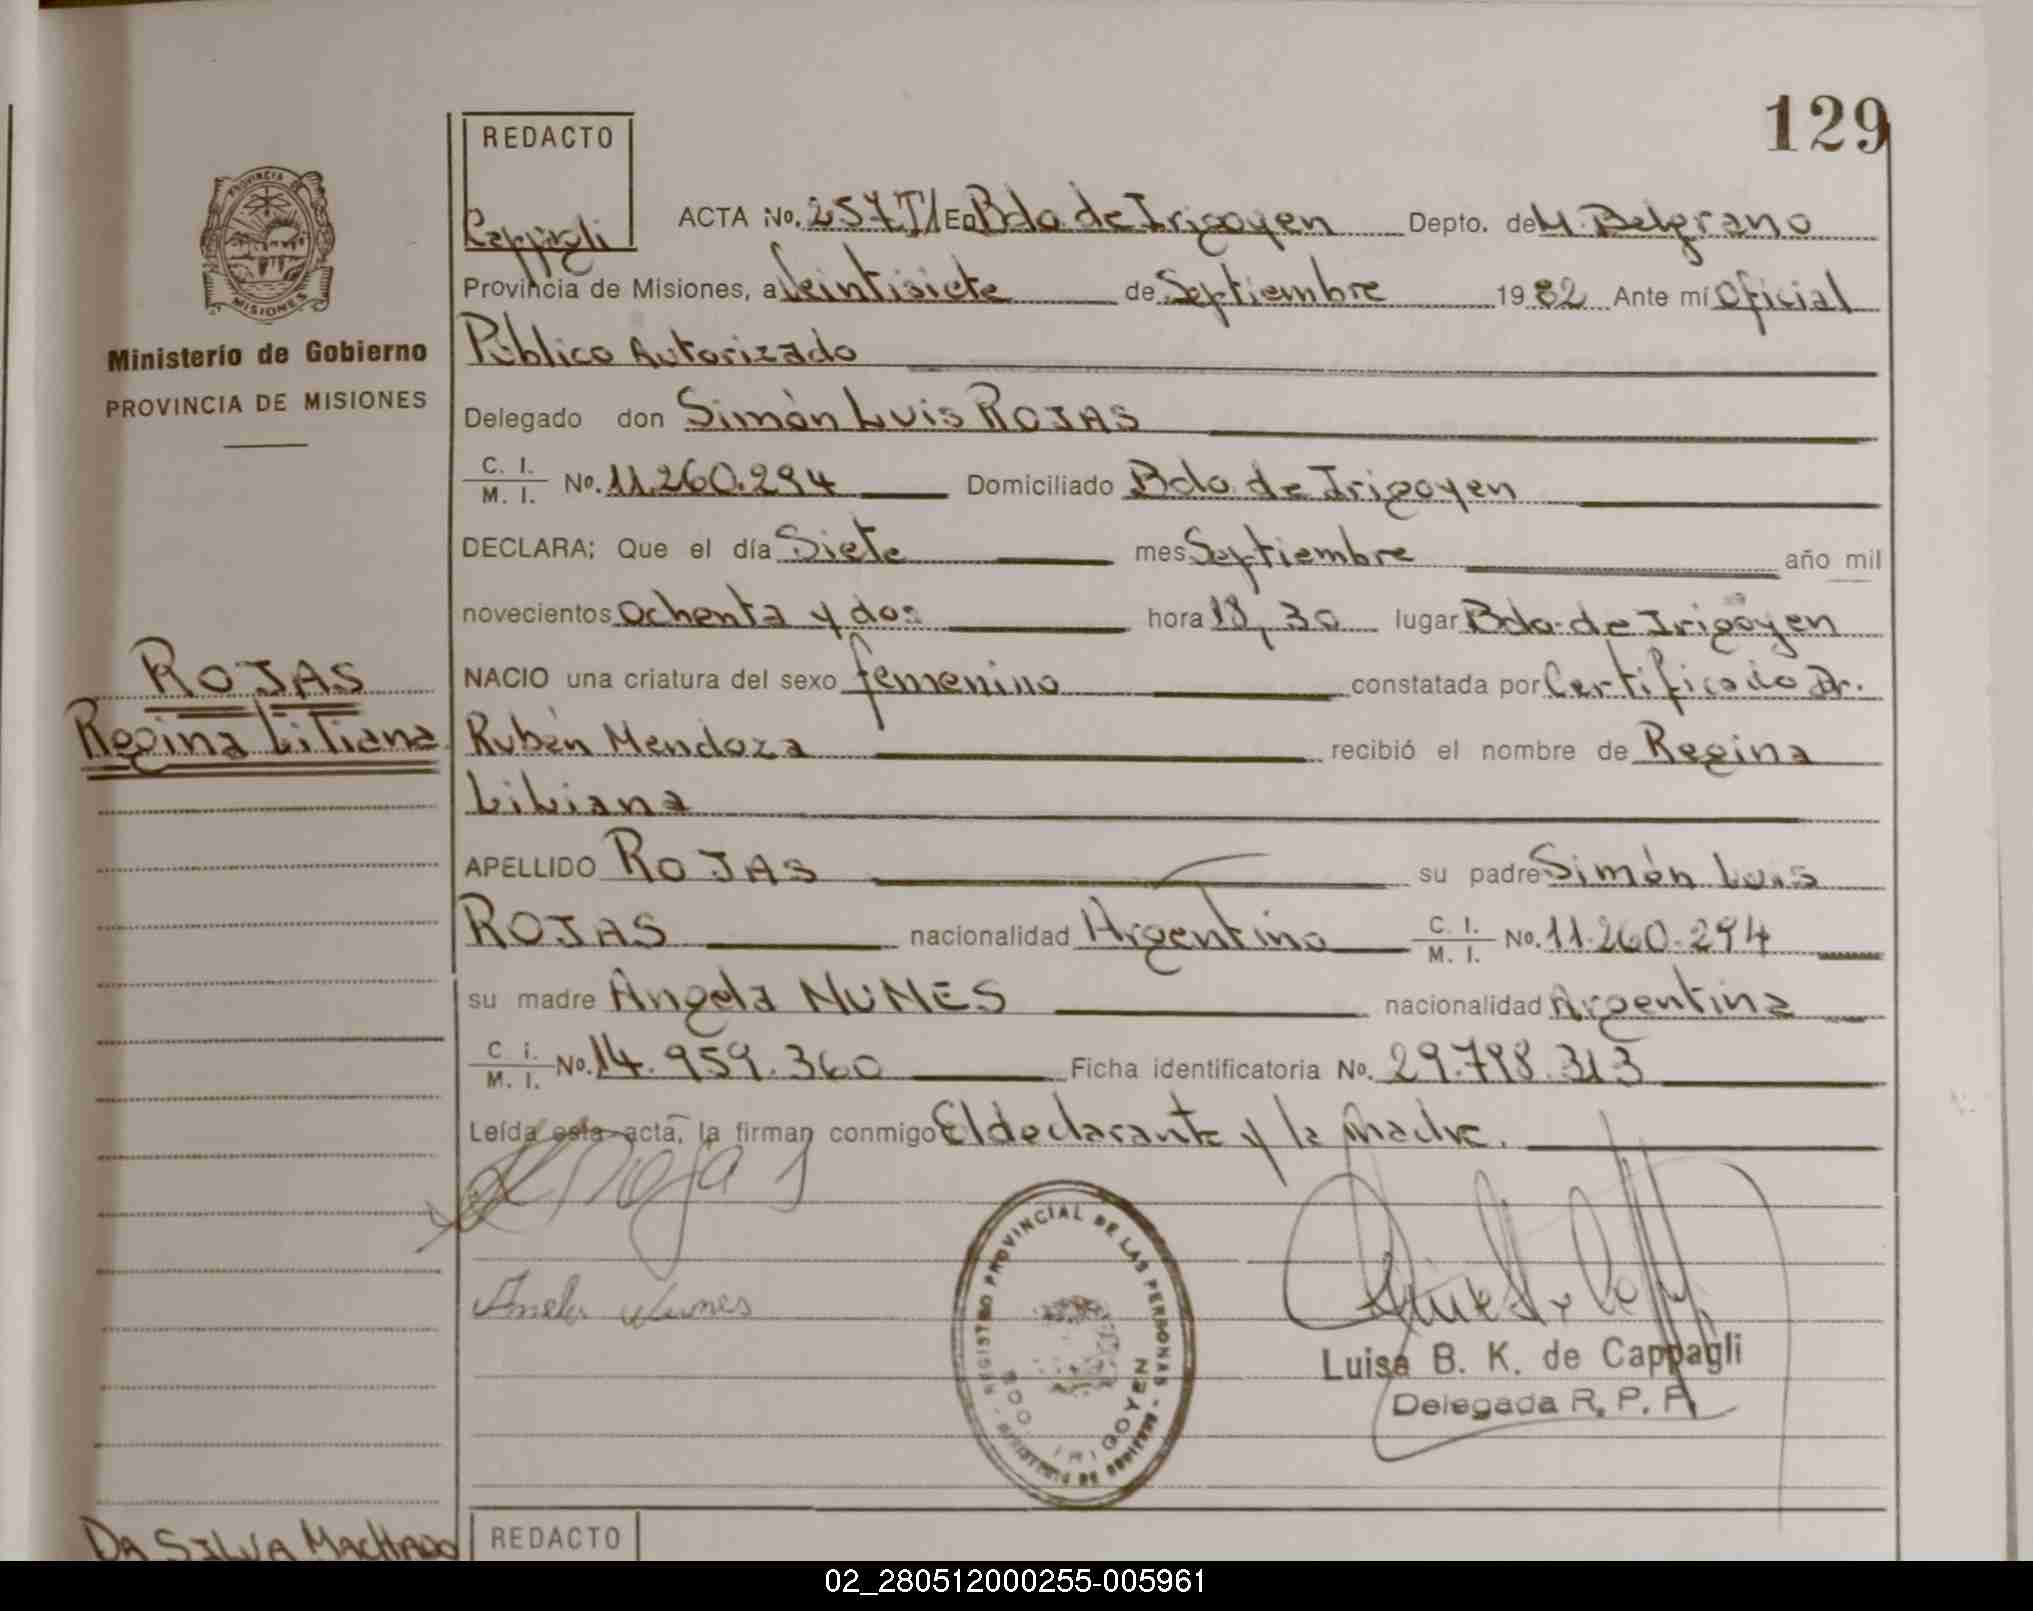 129
REDACTO
Cappagli
PROVINCIA DE
MISIONES
Ministerio de Gobierno
PROVINCIA DE MISIONES
ACTA No. 257 TI En Bdo. de Irigoyen Depto. de M. Belgrano
Provincia de Misiones, a Veintisiete de Septiembre 1982 Ante mí Oficial
Público Autorizado
Delegado don Simón Luis ROJAS
C. I. / M. I. No. 11.260.294 Domiciliado Bdo. de Irigoyen
DECLARA: Que el día Siete mes Septiembre año mil
novecientos ochenta y dos hora 18,30 lugar Bdo. de Irigoyen
ROJAS
Regina Liliana
NACIO una criatura del sexo femenino constatada por Certificado Dr.
Rubén Mendoza recibió el nombre de Regina
Liliana
APELLIDO ROJAS su padre Simón Luis
ROJAS nacionalidad Argentino C. I. / M. I. No. 11.260.294
su madre Angela NUNES nacionalidad Argentina
C. i. / M. I. No. 14.959.360 Ficha identificatoria No. 29.798.313
Leída esta acta, la firman conmigo El declarante y la Madre.
Rojas
Anela Nunes
REGISTRO PROVINCIAL DE LAS PERSONAS - MINISTERIO DE GOBIERNO -
BDO. IRIGOYEN
Luisa B. K. de Cappagli
Delegada R. P. P.
DA SILVA MACHADO
REDACTO
02_280512000255-005961